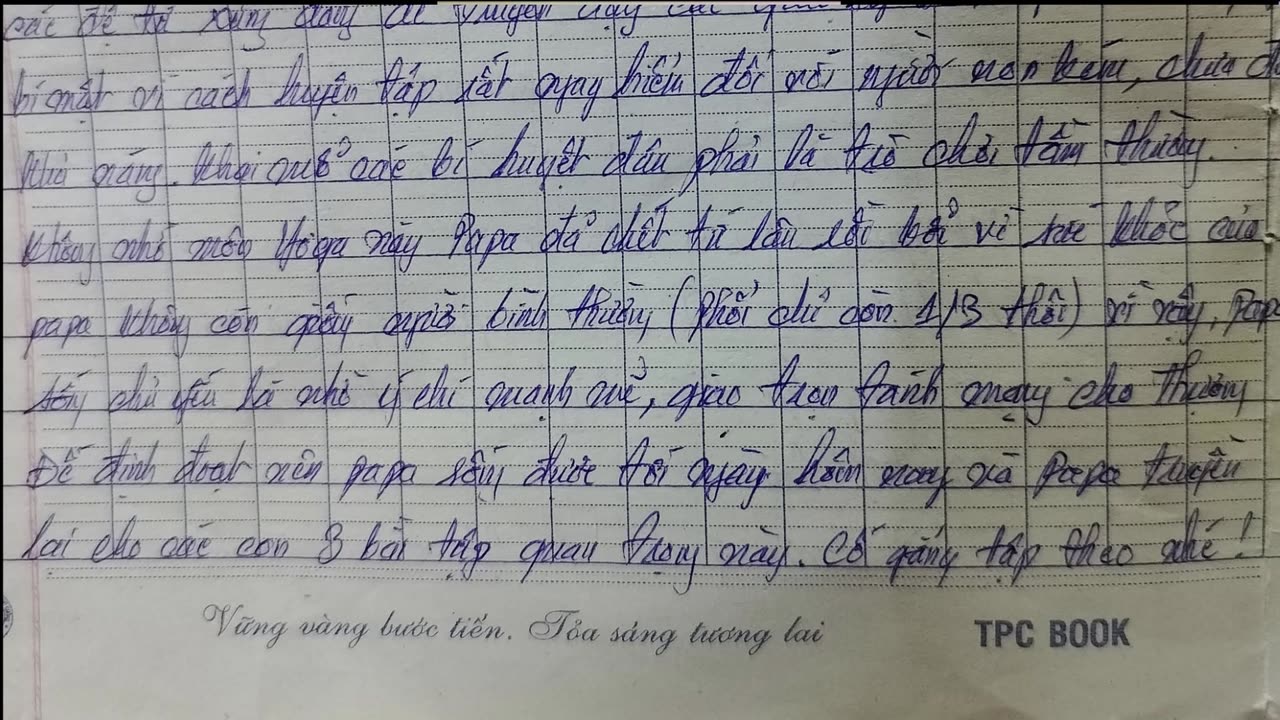 các đệ tử xứng đáng để truyền dạy các
bí mật vì cách luyện tập rất nguy hiểm đối với người non kém, chưa đủ
khả năng. Khai mở các bí huyệt đâu phải là trò chơi tầm thường.
Không nhờ môn Yoga này Papa đã chết từ lâu rồi bởi vì sức khỏe của
papa không còn giống người bình thường (phổi chỉ còn 1/3 thôi) vì vậy, Papa
sống chủ yếu là nhờ ý chí mạnh mẽ, giao trọn tánh mạng cho Thượng
Đế định đoạt nên papa sống được tới ngày hôm nay và Papa truyền
lại cho các con 3 bài tập quan trọng này. Cố gắng tập theo nhé!
Vững vàng bước tiến. Tỏa sáng tương lai
TPC BOOK